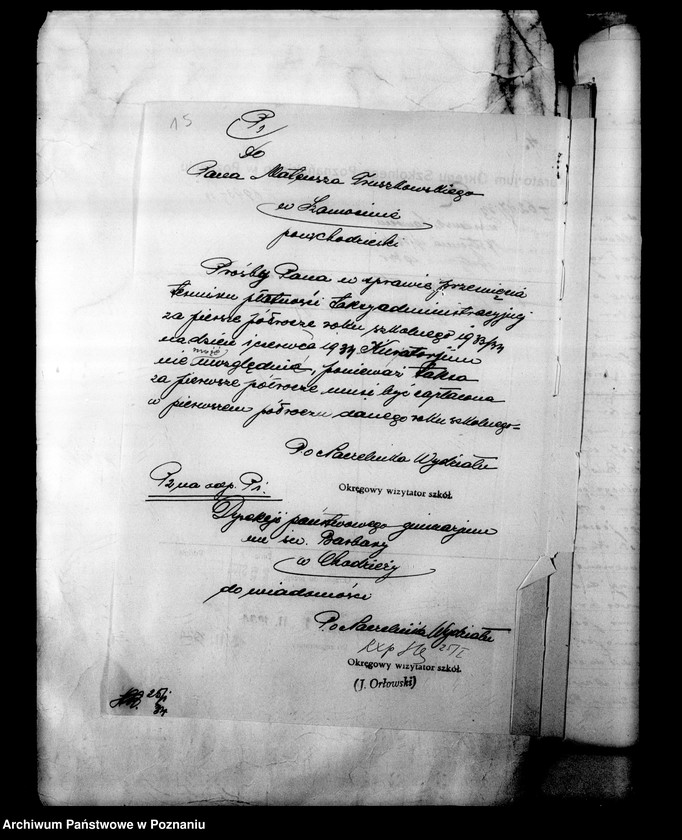 15
P1
do
Pana Mateusza Truszkowskiego
w Szamocinie
pow. chodzieski
Prośby Pana w sprawie przesunięcia
terminu płatności taksy administracyjnej
za piersze półrocze roku szkolnego 1933/34
na dzień 1 czerwca 1934 Kuratorjum
może
nie uwzględnić, ponieważ taksa
za pierwsze półrocze musi być zapłacona
w pierwszem półroczu danego roku szkolnego=
Po Naczelnika Wydziału
Okręgowy wizytator szkół.
P2 na odp. P1.
Dyrekcji państwowego gimnazjum
im św. Barbary
w Chodzieży
do wiadomości
Po Naczelnika Wydziału
25/I
Okręgowy wizytator szkół.
(J. Orłowski)
25/I
34
Archiwum Państwowe w Poznaniu